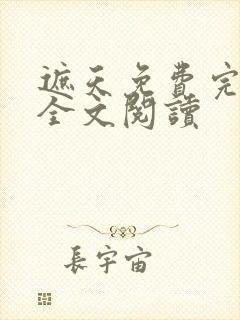 遮天免費完
全文閱讀
長宇宙